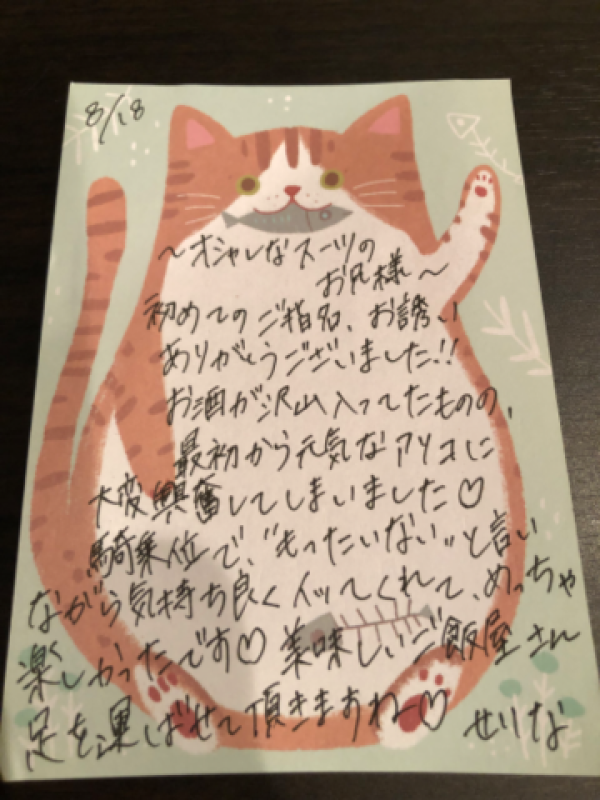 8/18
～オシャレなスーツの
お兄様～
初めてのご指名、お誘い
ありがとうございました!!
お酒が沢山入ってたものの、
最初から元気なアソコに
大変興奮してしまいました♡
騎乗位で、"もったいない"と言い
ながら気持ち良くイッてくれて、めっちゃ
楽しかったです♡ 美味しいご飯屋さん
足を運ばせて頂きますね～♡ せりな